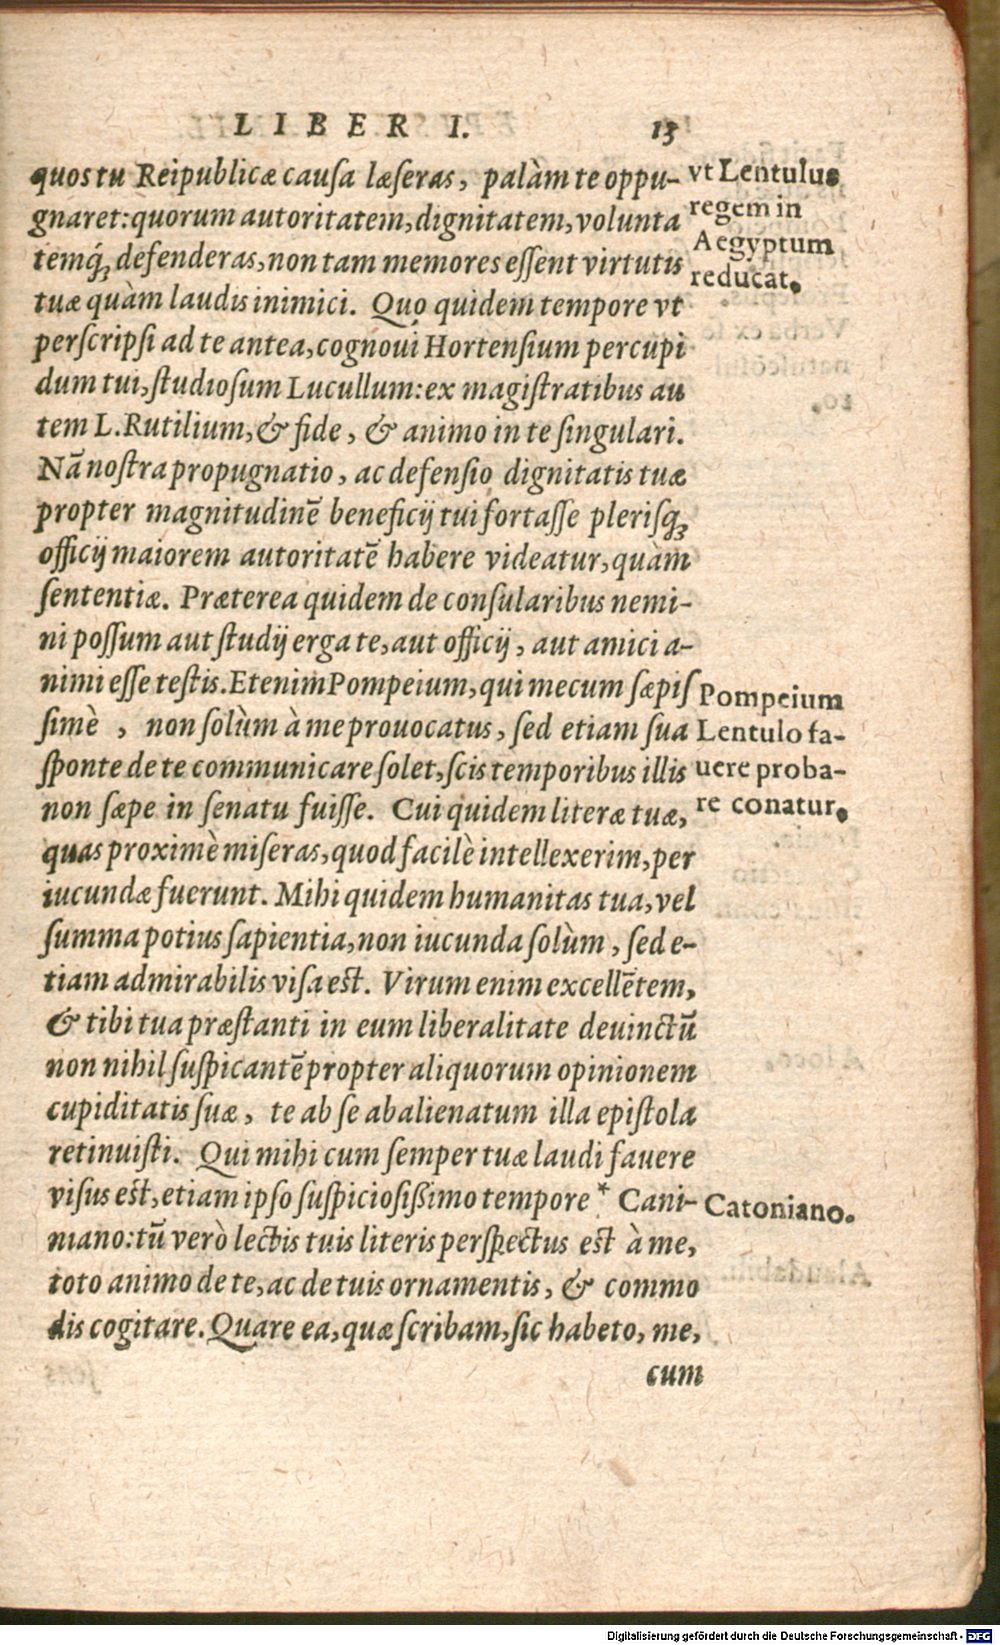 LIBER I. 13
quos tu Reipublicæ causa læseras, palàm te oppu-
gnaret: quorum autoritatem, dignitatem, volunta
temq́ꝫ defenderas, non tam memores essent virtutis
tuæ quàm laudis inimici. Quo quidem tempore vt
perscripsi ad te antea, cognoui Hortensium percupi
dum tui, studiosum Lucullum: ex magistratibus au
tem L. Rutilium, & fide, & animo in te singulari.
Nã nostra propugnatio, ac defensio dignitatis tuæ
propter magnitudinẽ beneficij tui fortasse plerisqꝫ
officij maiorem autoritatẽ habere videatur, quàm
sententiæ. Præterea quidem de consularibus nemi-
ni possum aut studij erga te, aut officij, aut amici a-
nimi esse testis. Etenim Pompeium, qui mecum sæpis
simè, non solùm à me prouocatus, sed etiam sua
sponte de te communicare solet, scis temporibus illis
non sæpe in senatu fuisse. Cui quidem literæ tuæ,
quas proximè miseras, quod facilè intellexerim, per
iucundæ fuerunt. Mihi quidem humanitas tua, vel
summa potius sapientia, non iucunda solùm, sed e-
tiam admirabilis visa est. Virum enim excellẽtem,
& tibi tua præstanti in eum liberalitate deuinctũ
non nihil suspicantẽ propter aliquorum opinionem
cupiditatis suæ, te ab se abalienatum illa epistola
retinuisti. Qui mihi cum semper tuæ laudi fauere
visus est, etiam ipso suspiciosißimo tempore * Cani-
niano: tũ verò lectis tuis literis perspectus est à me,
toto animo de te, ac de tuis ornamentis, & commo
dis cogitare. Quare ea, quæ scribam, sic habeto, me,
cum
vt Lentulus
regem in
Aegyptum
reducat.
Pompeium
Lentulo fa-
uere proba-
re conatur.
Catoniano.
Digitalisierung gefördert durch die Deutsche Forschungsgemeinschaft - DFG